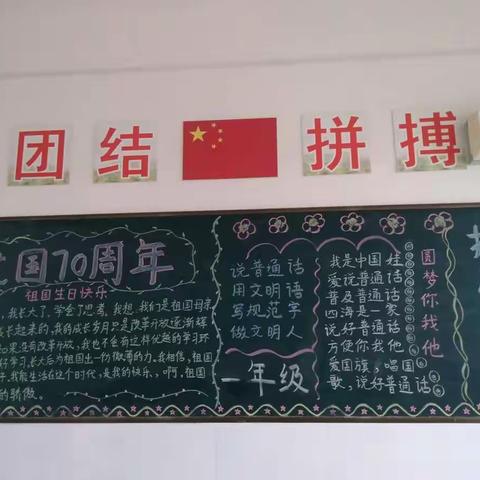 团结 拼搏
国70周年
祖国生日快乐
我长大了,学会了思考,我想,我们是祖国母亲
长起来的,我的成长岁月只是改革开放逐渐辉
没有改革开放,我也不会有这样优越的学习环
好学习,长大后为祖国出一份微薄的力,我相信,祖国
我能生活在这个时代,是我的快乐,啊,祖国
的骄傲。
说普通话
用文明语
写规范字
做文明人
一年级
我是中国娃
爱说普通话
普及普通话
四海是一家
说好普通话
方便你我他
爱国旗,唱国
歌,说好普通话
圆梦你我他